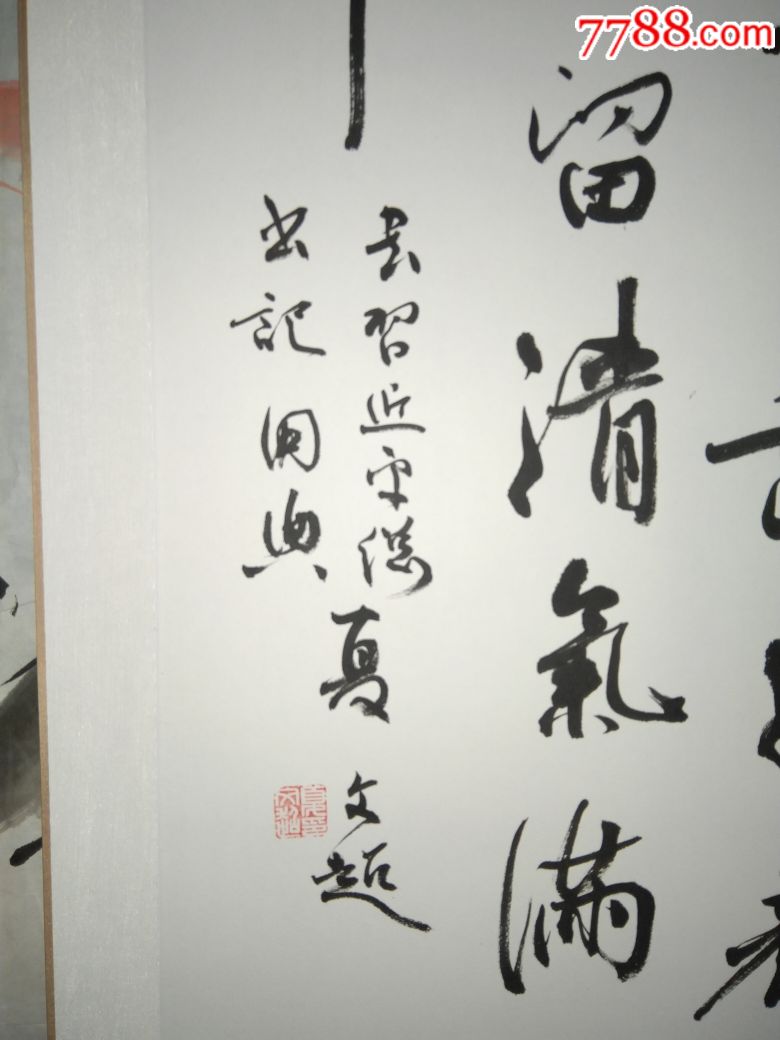 7788.com
留清氣滿
書習近平總
書記用典
夏文超